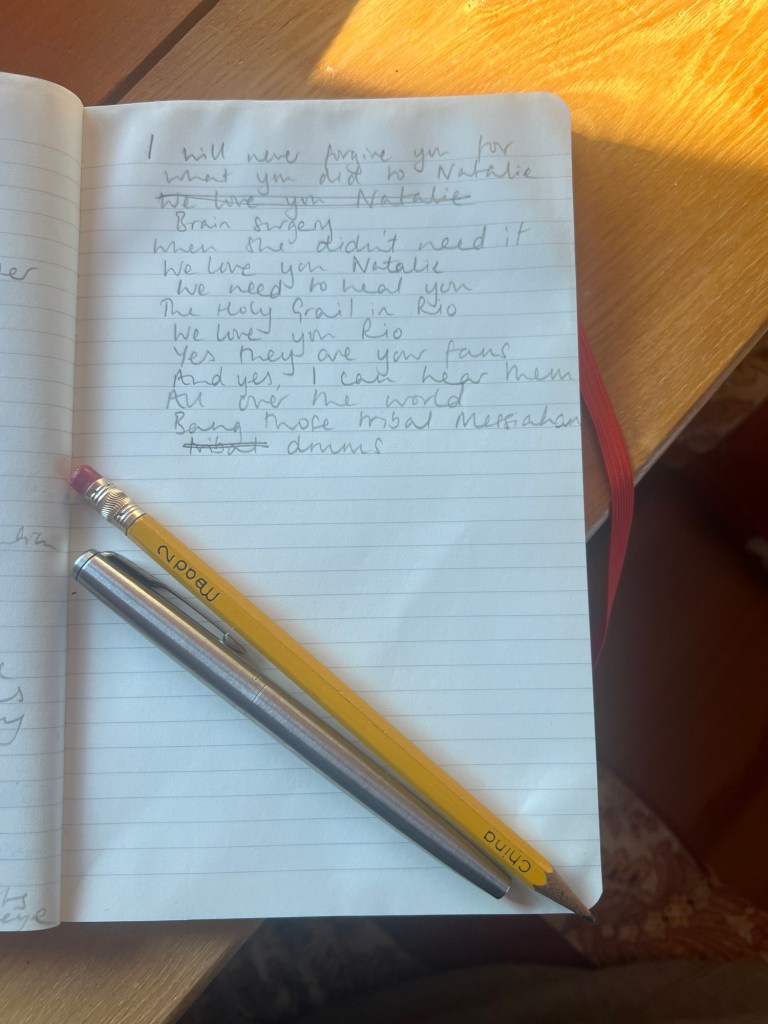 I will never forgive you for
what you did to Natalie
We love you Natalie
Brain surgery
when she didn't need it
We love you Natalie
We need to heal you
The Holy Grail in Rio
We love you Rio
Yes they are your fans
And yes, I can hear them
All over the world
Bang those tribal Messiahan
tribal drums
Mead 2
China